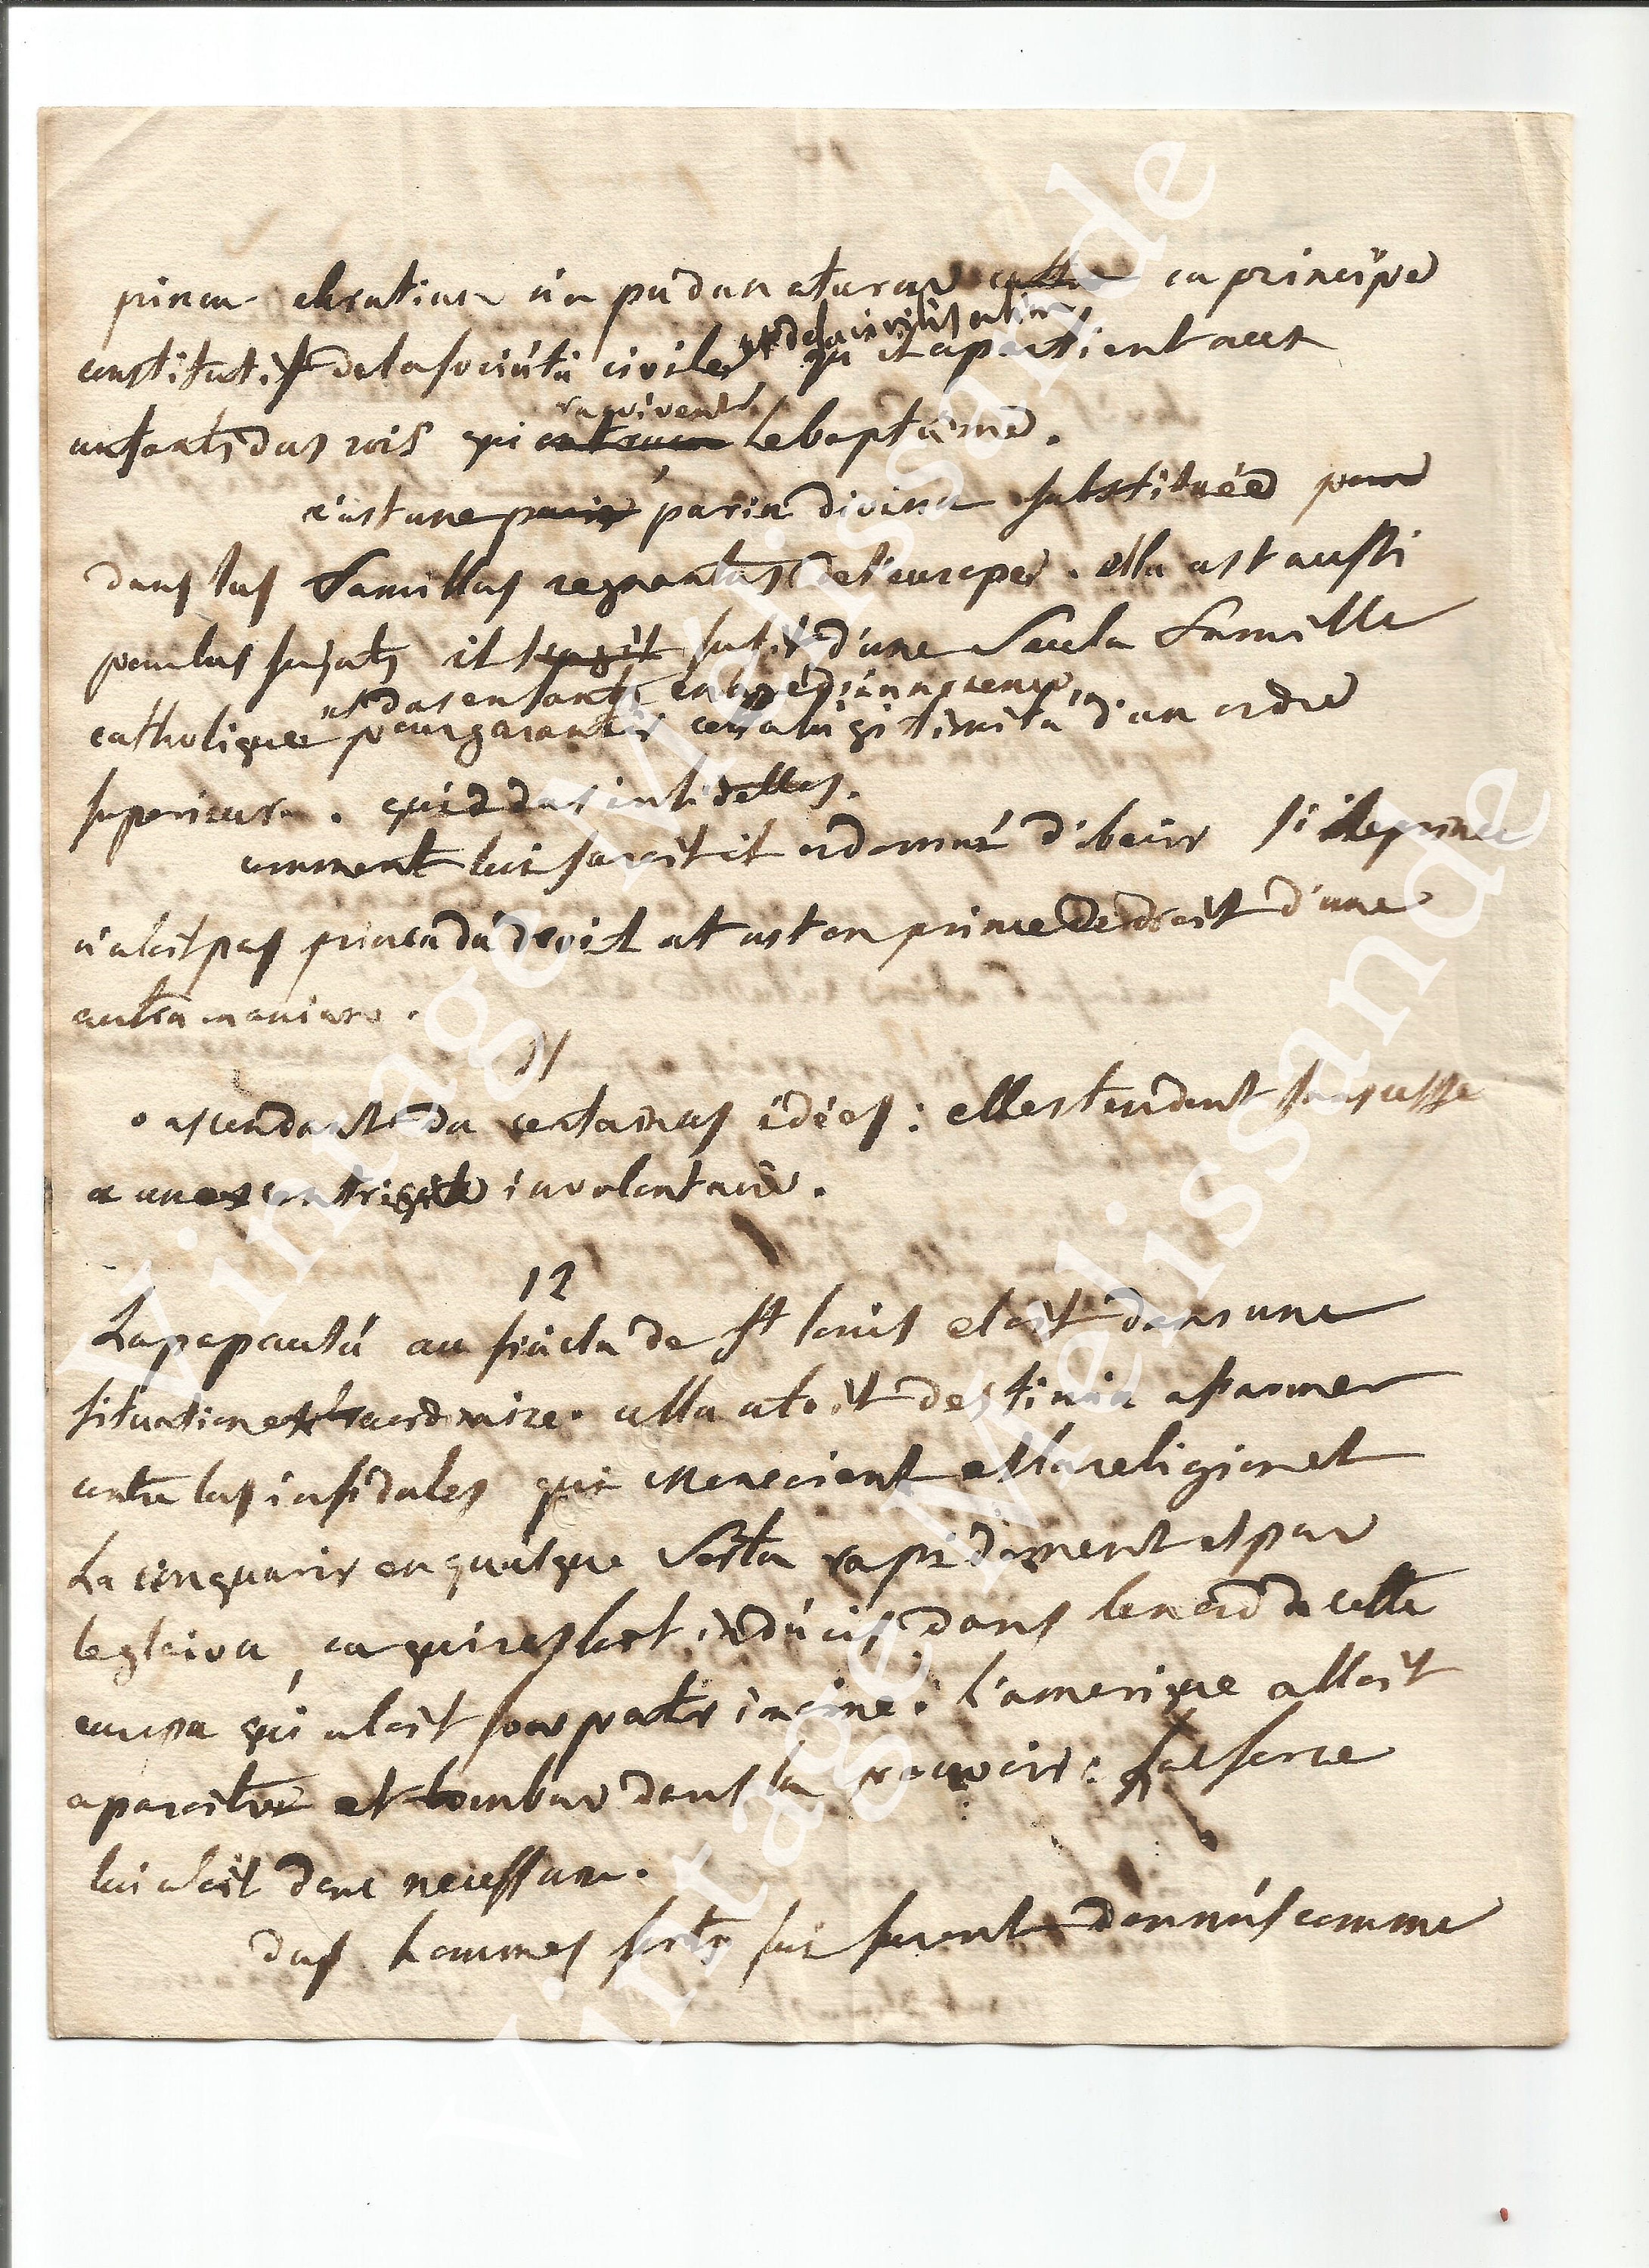 prince chretien n'a pu denaturer cette ce principe
et de la civilisation
constitutif de la société civile qu'il apartient aux
reçoivent
enfants des rois qui le baptême.
c'est une pairie divine substituée pour
dans les familles regnantes de l'europe. elle est aussi
pour les sujets il s'agit suffit d'une seule famille
et des enfants
catholique pour garantir cette légitimité d'un ordre
superieur. quid des infidelles.
comment lui seroit il ordonné d'obeir si le prince
n'etoit pas prince de droit et est on prince de droit d'une
autre maniere.
11
ascendant de certaines idées: elles tendent sans cesse
a une involontaire.
12
La papauté au siècle de st louis etoit dans une
situation extraordinaire. elle etoit destinée a s'armer
contre les infideles qui menacoient et la religion et
La conquerir en quelque sorte rapidement et par
le glaive, ce qui restoit indécis dans le nord de cette
europe qui etoit son patrimoine. l'amerique alloit
aparoitre et tomber dans son pouvoir: sa force
lui etoit donc necessaire.
des hommes forts lui furent donnés comme
Vintage Mélissande
Vintage Mélissande